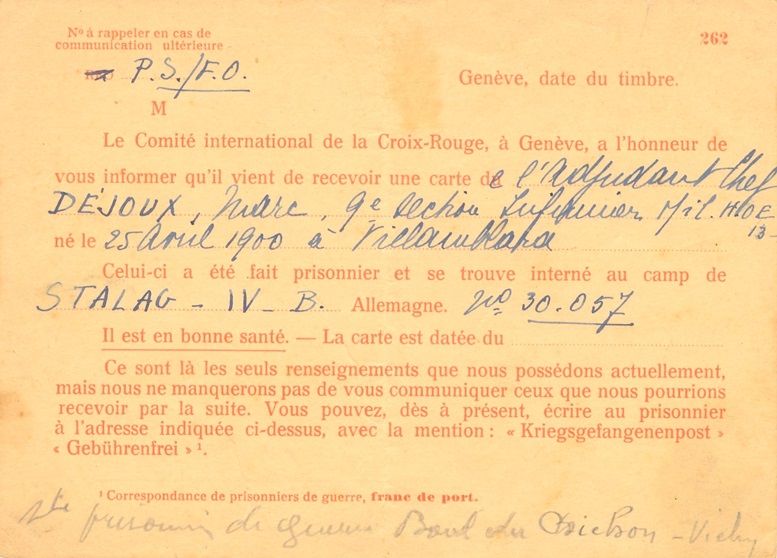 Nº à rappeler en cas de
communication ultérieure
262
P.S./F.O.
Genève, date du timbre.
M
Le Comité international de la Croix-Rouge, à Genève, a l'honneur de
vous informer qu'il vient de recevoir une carte de l'Adjudant Chef
DÉJOUX, Marc, 9e Section Infirmier Mil.
né le 25 Avril 1900 à Villamblard
Celui-ci a été fait prisonnier et se trouve interné au camp de
STALAG - IV - B. Allemagne. Nº 30.057
Il est en bonne santé. — La carte est datée du
Ce sont là les seuls renseignements que nous possédons actuellement,
mais nous ne manquerons pas de vous communiquer ceux que nous pourrions
recevoir par la suite. Vous pouvez, dès à présent, écrire au prisonnier
à l'adresse indiquée ci-dessus, avec la mention : « Kriegsgefangenenpost »
« Gebührenfrei » ¹.
¹ Correspondance de prisonniers de guerre, franc de port.
de guerre - Vichy